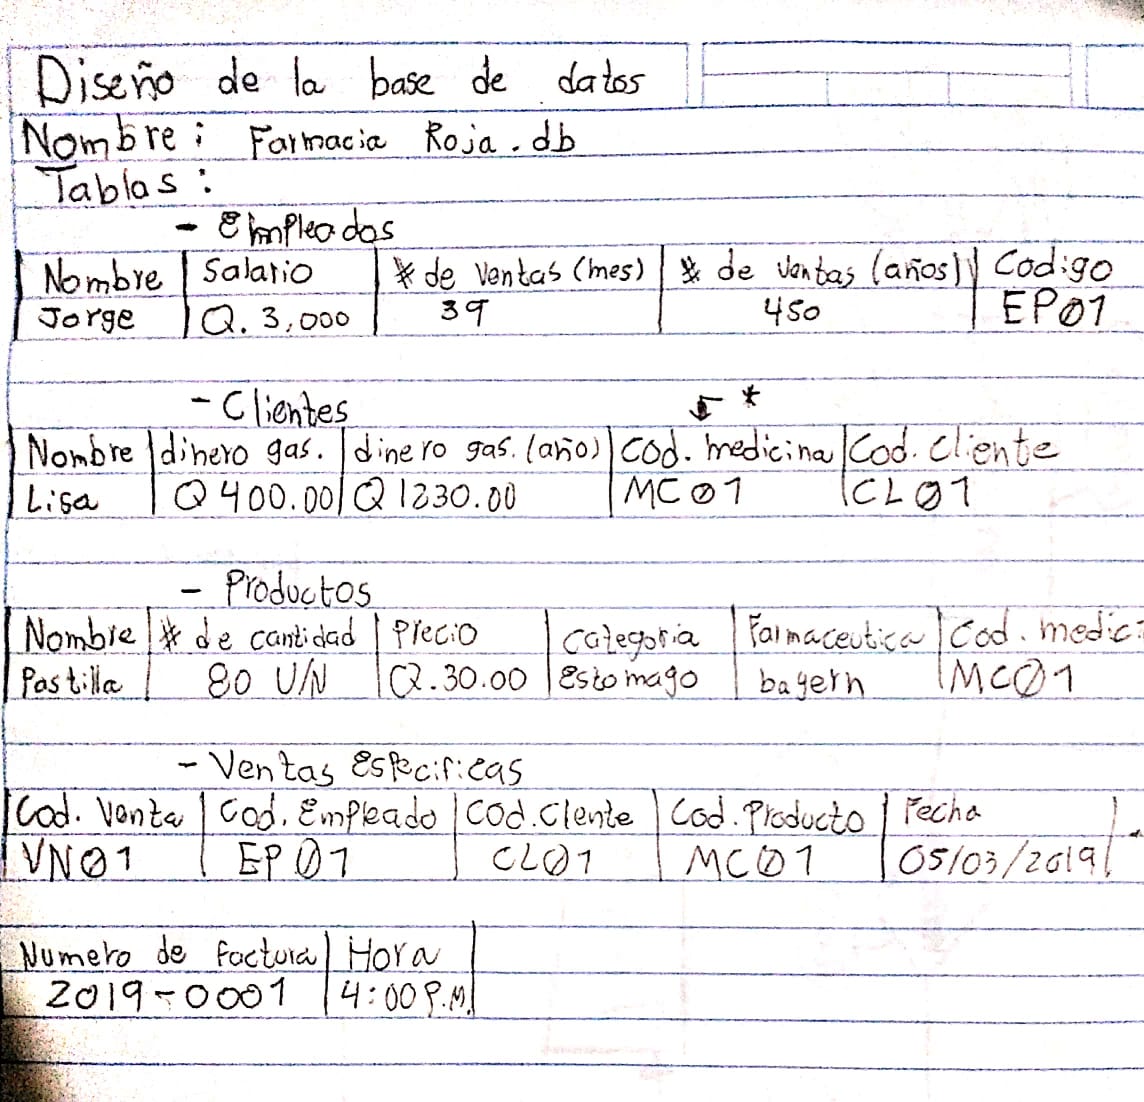 Diseño de la base de datos
Nombre: Farmacia Roja.db
Tablas:
- Empleados
Nombre Salario # de ventas (mes) # de ventas (años) Codigo
Jorge Q. 3,000 39 450 EP01
- Clientes *
Nombre dinero gas. dinero gas. (año) Cod. medicina Cod. Cliente
Lisa Q 400.00 Q 1230.00 MC01 CL01
- Productos
Nombre # de cantidad Precio Categoria Farmaceutica Cod. medici
Pastilla 80 U/N Q.30.00 Estomago bayern MC01
- Ventas Especificas
Cod. Venta Cod. Empleado Cod. Clente Cod. Producto Fecha
VN01 EP01 CL01 MC01 05/03/2019
Numero de factura Hora
2019-0001 4:00 P.M.